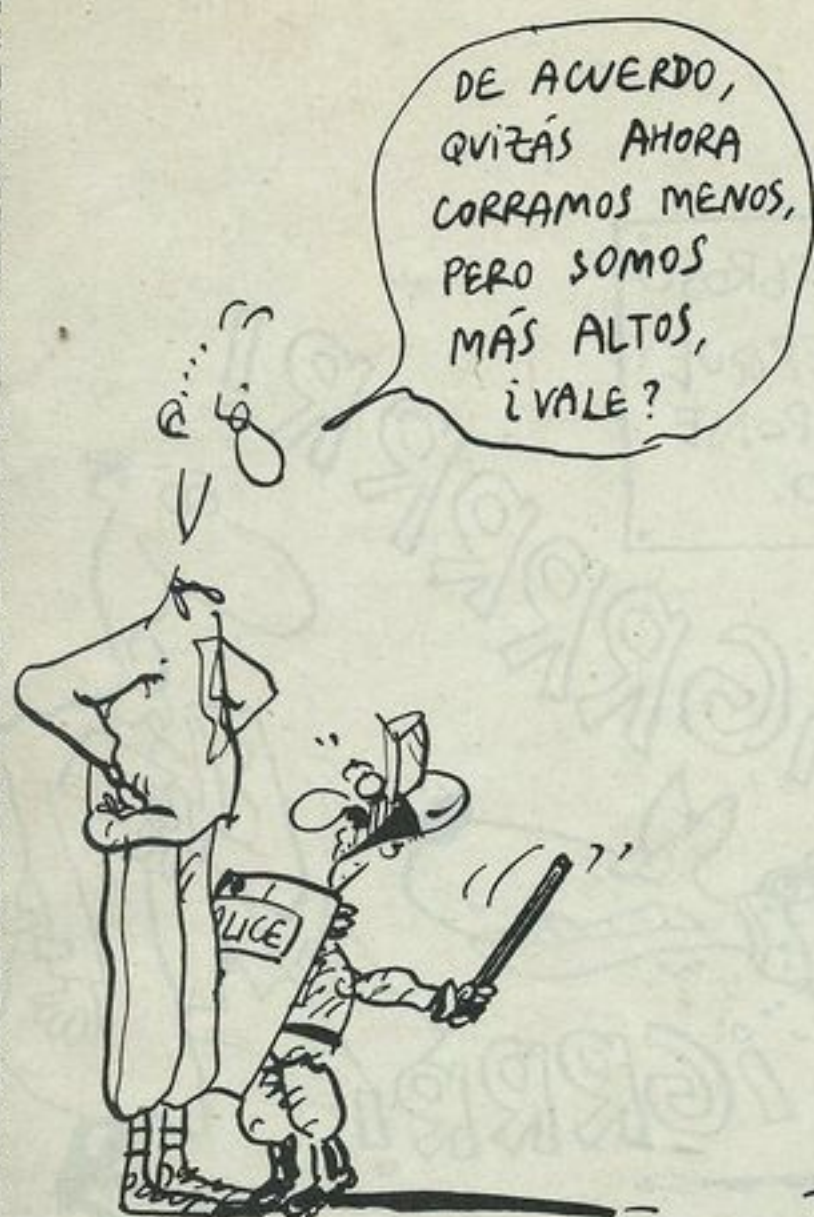 DE ACUERDO,
QUIZÁS AHORA
CORRAMOS MENOS,
PERO SOMOS
MÁS ALTOS,
¿VALE?
OLICE